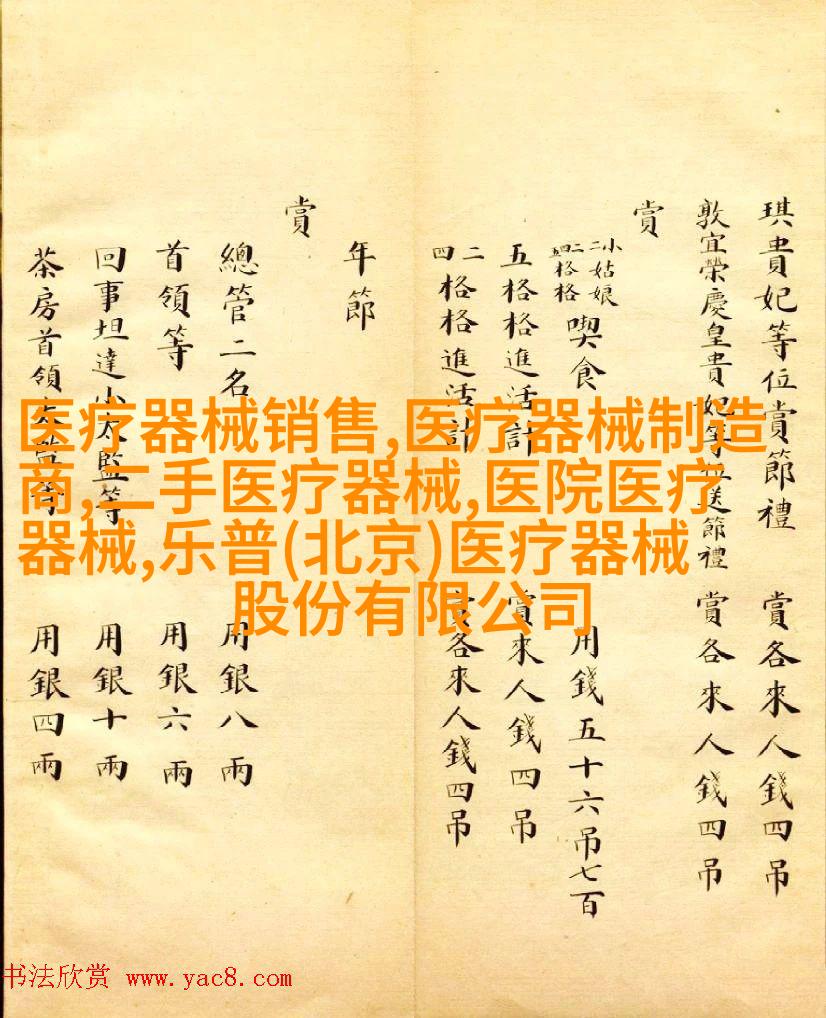 琪貴妃等位賞節禮 賞各來人錢四吊
敦宜榮慶皇貴妃等位送節禮 賞各來人錢四吊
賞
小姑娘
二格格
四格格
喫食 用錢五十六吊七百
五格格進活計 賞來人錢四吊
二
四格格進活計 賞各來人錢四吊
年節
賞
總管二名 用銀八兩
首領等 用銀六兩
回事坦達小太監等 用銀十兩
茶房首領太監等 用銀四兩
医疗器械销售,医疗器械制造
商,二手医疗器械,医院医疗
器械,乐普(北京)医疗器械
股份有限公司
书法欣赏 www.yac8.com